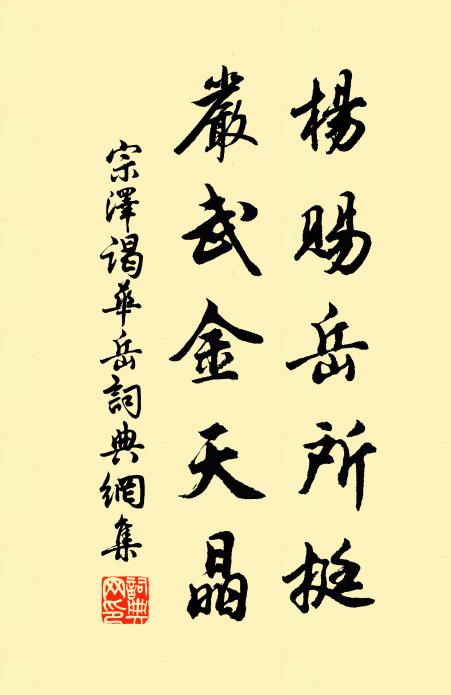 楊賜岳所挺
嚴武金天晶
宗澤謁華岳詞典網集
詞典網印